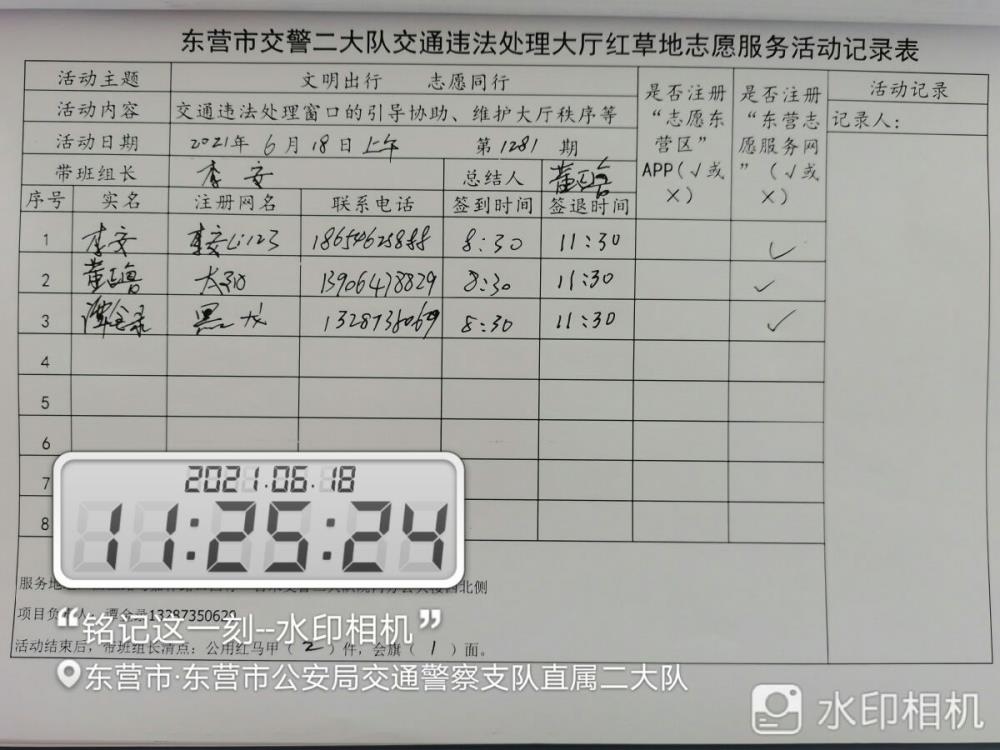 东营市交警二大队交通违法处理大厅红草地志愿服务活动记录表
活动主题 文明出行 志愿同行
活动内容 交通违法处理窗口的引导协助、维护大厅秩序等
活动日期 2021年 6月18日上午 第1281期
带班组长 李安 总结人
是否注册“志愿东营区”APP(√或×)
是否注册“东营志愿服务网”(√或×)
活动记录
记录人:
序号 实名 注册网名 联系电话 签到时间 签退时间
1 李安 18654625888 8:30 11:30 √
2 13906478829 8:30 11:30 √
3 谭金录 黑龙 8:30 11:30 √
4
5
6
7
8
2021.06.18
11:25:24
服务地 北侧
项目负 13287350620
活动结束后,带班组长清点:公用红马甲(2)件,会旗(1)面。
“铭记这一刻--水印相机”
东营市·东营市公安局交通警察支队直属二大队
水印相机